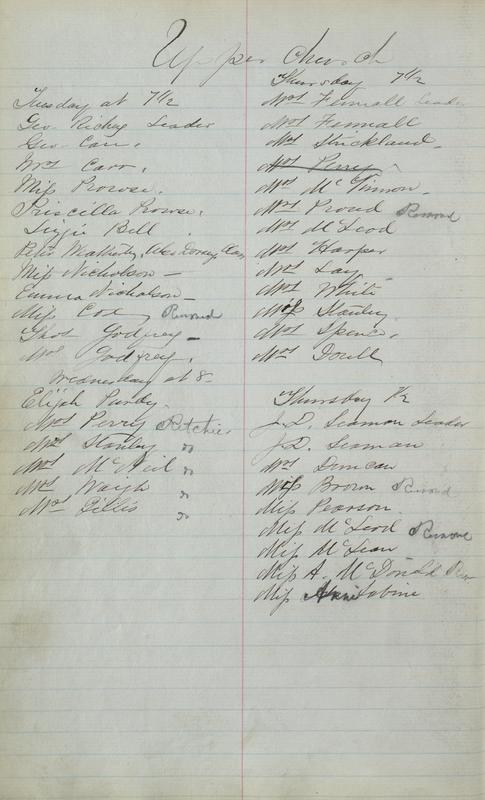 Upper Church
Tuesday at 7 1/2
Geo. Richey Leader
Geo. Carr.
Mrs Carr.
Miss Prowse.
Priscilla Prowse.
Lizzie Bell
Miss Nicholson —
Emma Nicholson —
Miss Cox Removed
Thos Godfrey —
Mrs Godfrey.
Wednesday at 8
Elijah Purdy.
Mrs Perry Ritchies
Mrs Stanley "
Mrs McNeil "
Mrs Waigh "
Mrs Gillis "
Thursday 7 1/2
Mrs Fennall Leader
Mrs Fennall
Mrs Strickland.
Mrs Perry
Mrs McKinnon.
Mrs Proud Removed
Mrs McLeod
Mrs Harper
Mrs Lay
Mrs White
Miss Stanley
Mrs Spence.
Mrs Doull
Thursday 7 1/2
J.D. Seaman Leader
J.D. Seaman
Mrs Duncan
Miss Brown Removed
Miss Pearson.
Miss McLeod Remove
Miss McLean
Miss A. McDonald
Miss